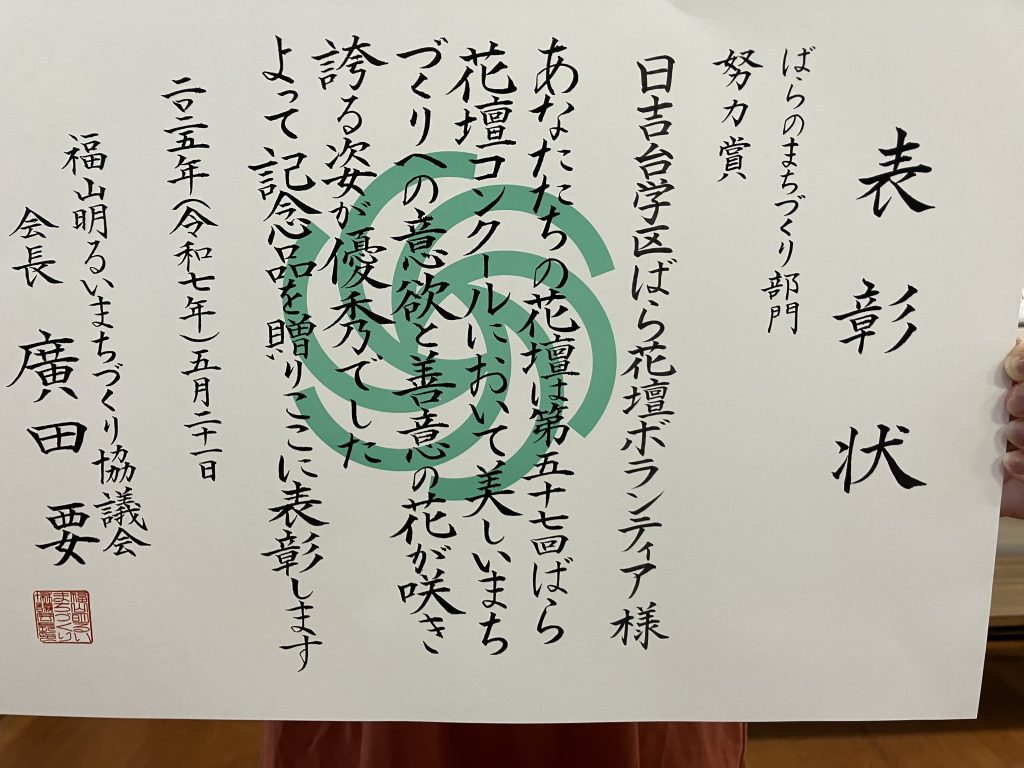 表彰状
ばらのまちづくり部門
努力賞
日吉台学区ばら花壇ボランティア様
あなたたちの花壇は第五十七回ばら
花壇コンクールにおいて美しいまち
づくりへの意欲と善意の花が咲き
誇る姿が優秀でした
よって記念品を贈りここに表彰します
二〇二五年(令和七年)五月二十一日
福山明るいまちづくり協議会
会長 廣田要